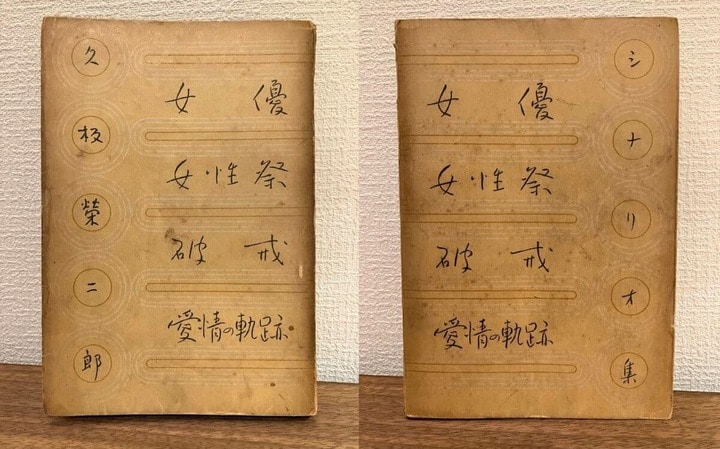 久板榮二郎
女優
女性祭
破戒
愛情の軌跡
女優
女性祭
破戒
愛情の軌跡
シナリオ集